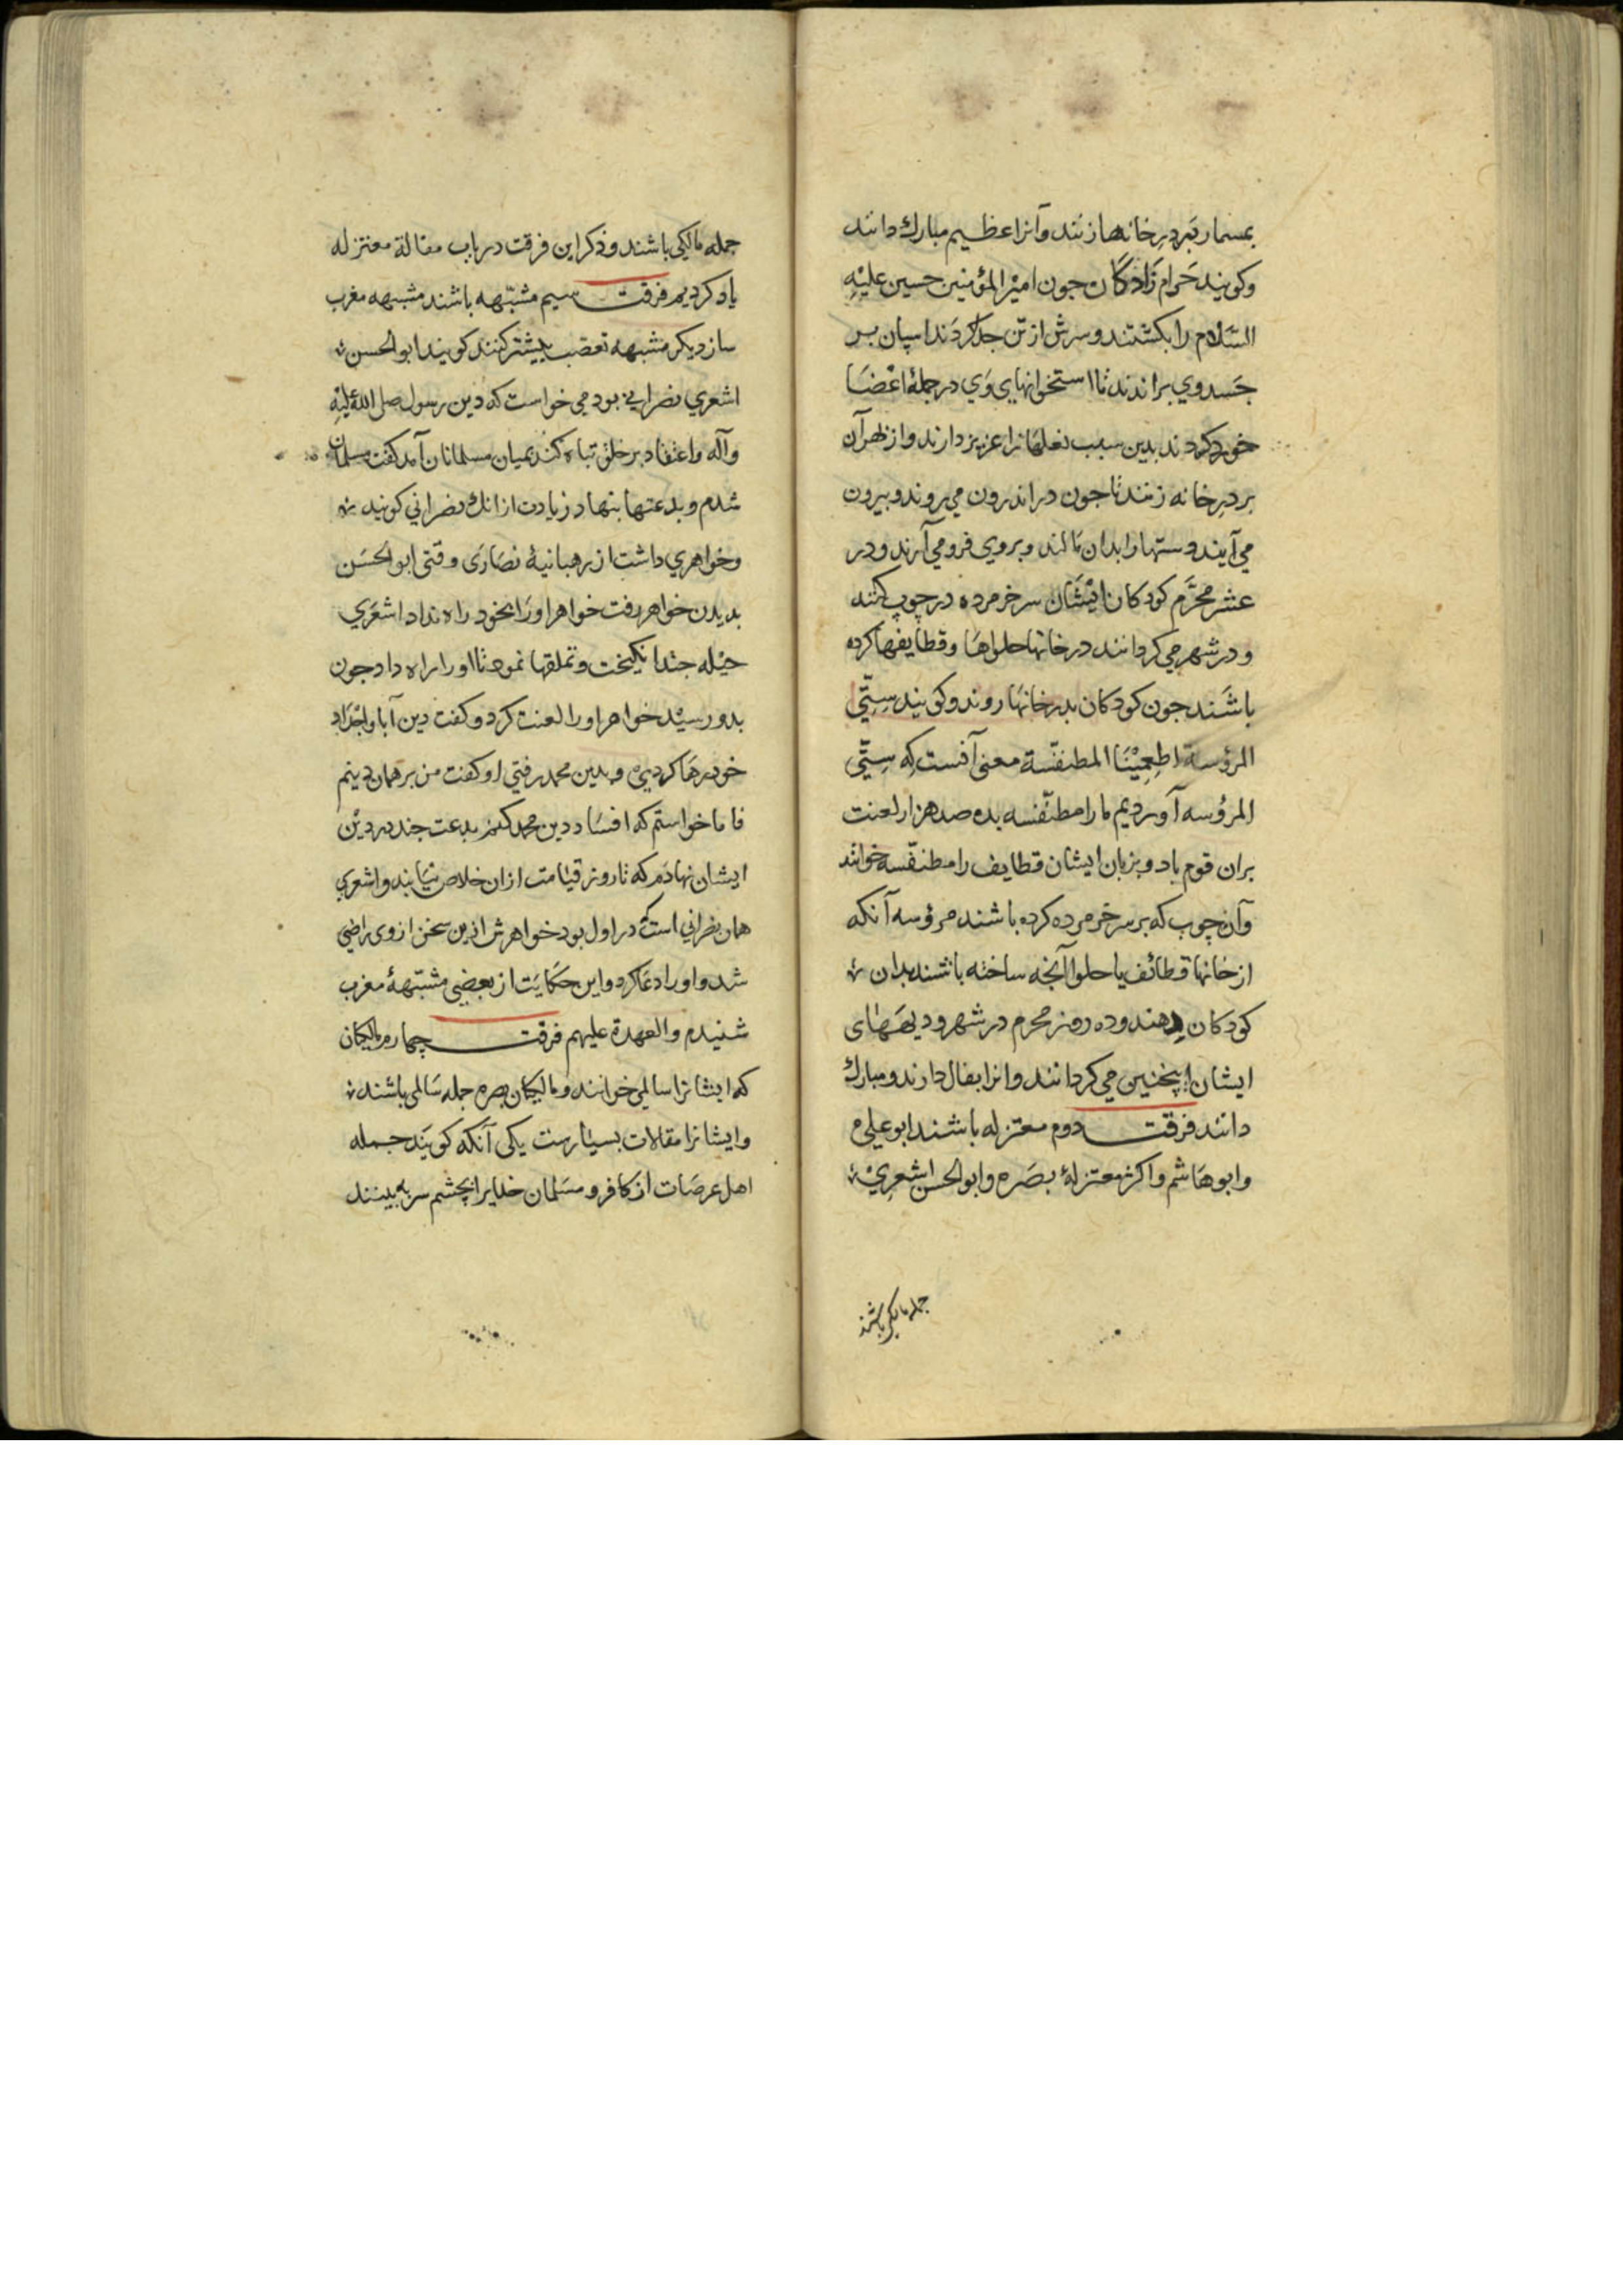 بمسمار بر در خانه‌ها زنند وآنرا عظیم مبارك دانند
وكویند حَرام زَادكَان جون امیْر المؤمنین حسین علیْهِ
السَّلام را بكشتند وسرش از تن جدا كردَند اسپان بر
جَسد وي براندند تا استخوانهای وَي در جملۀ اعْضَا
خورد كردند بدین سبب نعلهَا را عزیز دارند واز ظهر آن
بر درِ خانه زنند تا جون در اندرون مي روند وبیرون
مي آیند دستها را بدان مَالند وبروي فرو مي آرند ودر
عشر محرَّم كودكان ایْشَان سر خر مرده در چوب كنند
ودر شهر مي كردانند در خانها حلواهَا وقطایفها كرده
باشَند جون كودكان بدر خانهَا روند وكویند سِتّي
المرؤسة اطعِمِیْنَا المطنفّسة معنی آنست كه سِتّي
المرؤسه آوردیم ما را مطنّفسه بده صد هزار لعنت
بران قوم باد وبزبان ایشان قطایف را مطنفّسه خوانند
وآن چوب كه بر سر خر مرده كرده باشند مرؤسه آنكه
از خانها قطائف یا حلوا آنجه ساخته باشند بدان
كودكان دِهند وده روز محرم در شهر ودیهَهَای
ایشان اینجنین مي كردانند وانرا بفال دارند ومبارك
دانند فرقت دوم معتزله باشند ابو علی
وابو هَاشم واكثر معتزلۀ بصَره وابو الحسن اشعرِيْ
جمله مالكي باشند
جمله مالكي باشند وذكر این فرقت در باب مقالة معتزله
یاد كردیم فرقت سیم مشبّهه باشند مشبهه مغرب
ساز دیكر مشبهه تعصّب بیشتر كنند كویند ابو الحسن
اشعري نصراني بود مي خواست كه دین رسول صلى الله علیْهِ
وآله واعتقاد بر خلق تباه كند بمیان مسلمانان آمد كفت مسلمان
شدم وبدعتها بنهاد زیادت از انك نصراني كویند
وخواهري داشت از رهبانیۀ نصَارَی وقتی ابو الحَسَن
بدیدن خواهر رفت خواهر اورَا بخود راه نداد اشعَري
حیْله جند انكیخت وتملقها نمود تا او را راه داد جون
بدو رسیْد خواهر او را لعنت كرد وكفت دین آبا واجْدَاد
خود رهَا كردي وبدین محمد رفتي او كفت من بر همان دینم
فاما خواستم كه افسَاد دین محمد كنم بدعت جند در دیْن
ایشان نهادَم كه تا روز قیَامت ازان خلاص نیَابند واشعري
همان نصراني است كه در اول بود خواهرش ازین سخن از وی راضي
شد واو را دعَا كرد واین حكَایَت از بعضِي مشبّهۀ مغرب
شنیدم والعهدة علیهم فرقت چهارم مالكیان
كه ایشانرا سالمي خوانند ومالكیان بصره جمله سَالمی باشند
وایشانرا مقالات بسیَارست یكی آنكه كویَند جمله
اهل عرصَات از كَافر ومسَلمان خدایرا بچشم سر به بینند